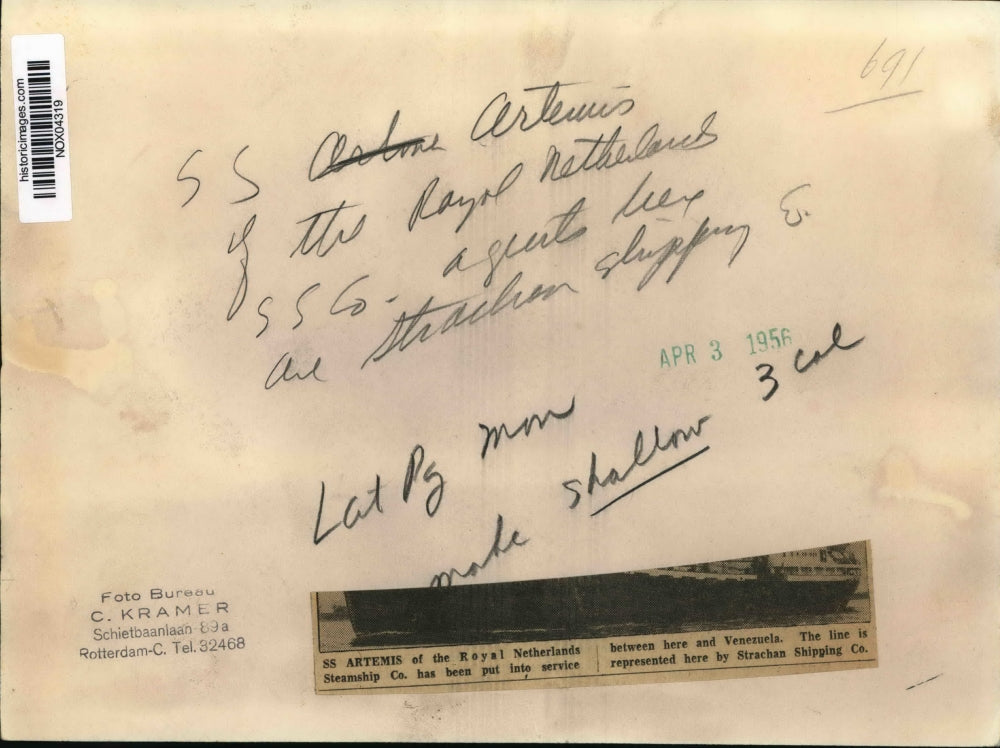 historicimages.com
NOX04319
691
SS Artemis
of the Royal Netherlands
SS Co. agents here
are Strachan Shipping Co.
APR 3 1956
3 col
Lat Pg Mon
make shallow
Foto Bureau
C. KRAMER
Schietbaanlaan 89a
Rotterdam-C. Tel. 32468
SS ARTEMIS of the Royal Netherlands
Steamship Co. has been put into service
between here and Venezuela. The line is
represented here by Strachan Shipping Co.